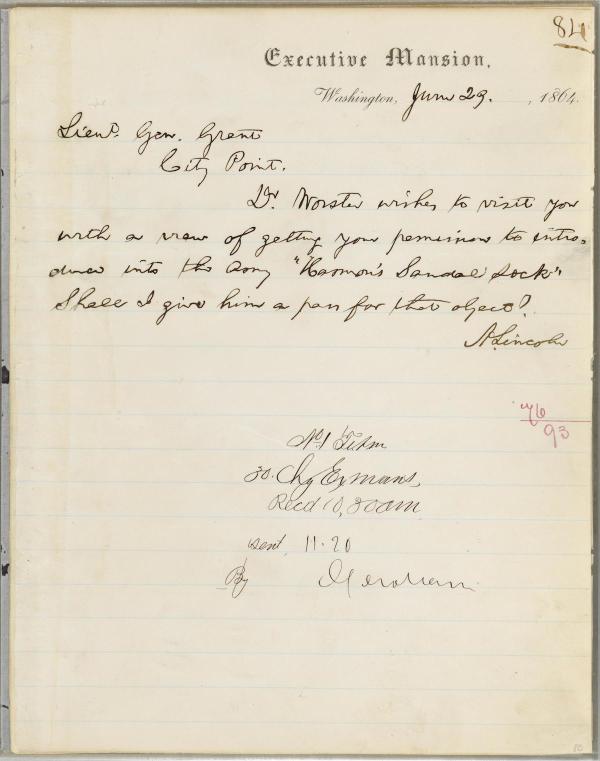 84
Executive Mansion,
Washington, June 29. , 1864.
Lieut. Gen. Grant
City Point.
Dr. Worster wishes to visit you
with a view of getting your permission to intro-
duce into the Army "Harmon's Sandal Sock"
Shall I give him a pass for that object?
A. Lincoln
76
93
No 1
30. Chg Ex mans,
Recd 10,30 am
sent 11.20
By